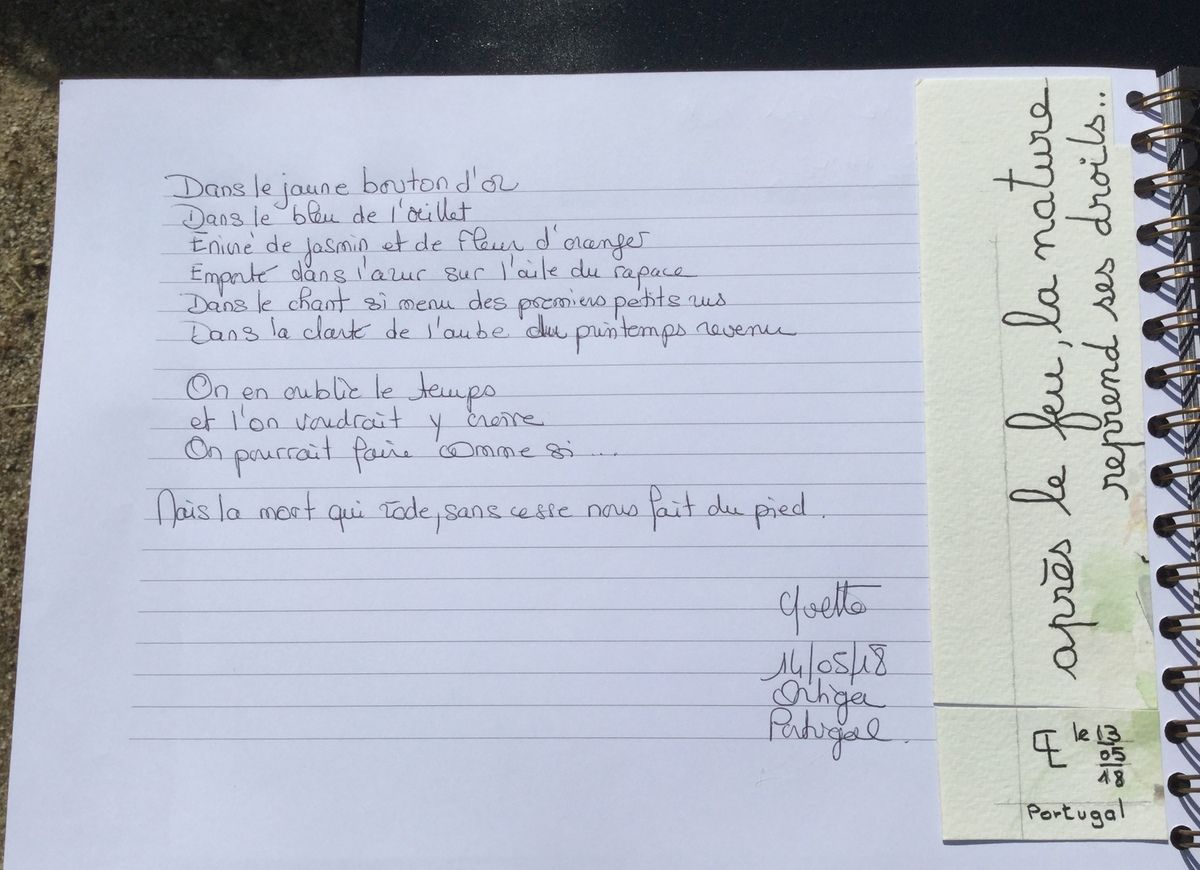 Dans le jaune bouton d'or
Dans le bleu de l'œillet
Enivré de jasmin et de fleur d'oranger
Emporté dans l'azur sur l'aile du rapace
Dans le chant si menu des premiers petits rus
Dans la clarté de l'aube du printemps revenu
On en oublie le temps
et l'on voudrait y croire
On pourrait faire comme si...
Mais la mort qui rôde, sans cesse nous fait du pied.
Yvette
14/05/18
Ortiga
Portugal.
après le feu, la nature
reprend ses droits..
le 13
05
18
Portugal